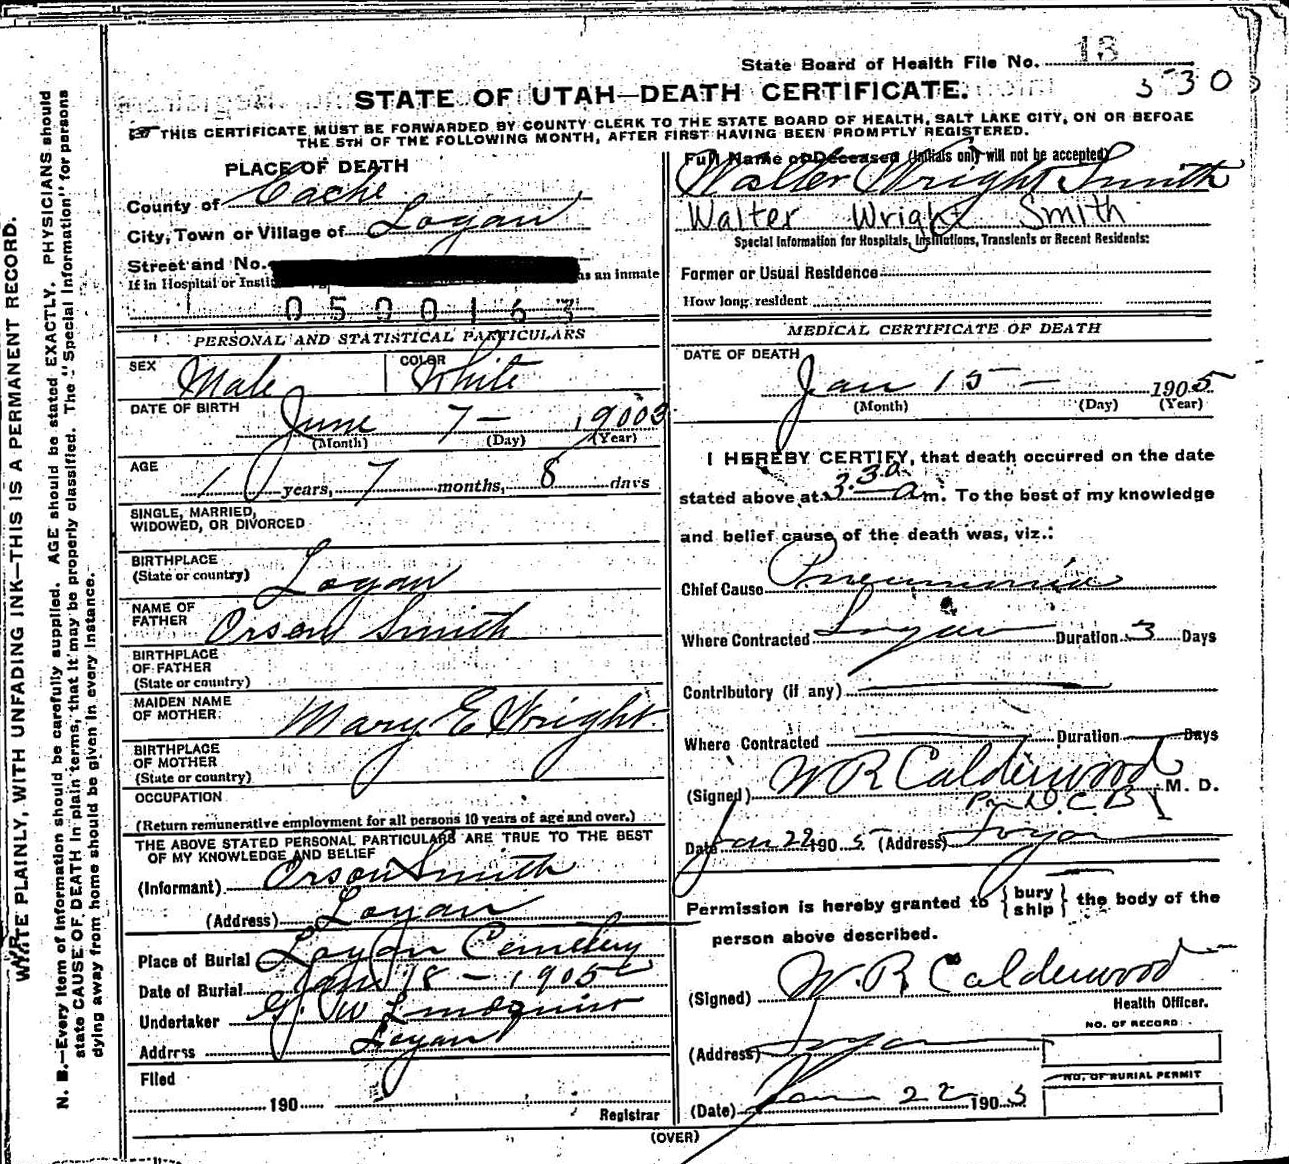 State Board of Health File No. 13
530
STATE OF UTAH—DEATH CERTIFICATE.
THIS CERTIFICATE MUST BE FORWARDED BY COUNTY CLERK TO THE STATE BOARD OF HEALTH, SALT LAKE CITY, ON OR BEFORE
THE 5TH OF THE FOLLOWING MONTH, AFTER FIRST HAVING BEEN PROMPTLY REGISTERED.
WRITE PLAINLY, WITH UNFADING INK—THIS IS A PERMANENT RECORD.
N. B.—Every item of information should be carefully supplied. AGE should be stated EXACTLY. PHYSICIANS should
state CAUSE OF DEATH in plain terms, that it may be properly classified. The "Special Information" for persons
dying away from home should be given in every instance.
PLACE OF DEATH
County of Cache
City, Town or Village of Logan
Street and No.
If in Hospital or as an inmate
0500163
PERSONAL AND STATISTICAL PARTICULARS
SEX Male COLOR White
DATE OF BIRTH June 7 — 1903
(Month) (Day) (Year)
AGE 1 years, 7 months, 8 days
SINGLE, MARRIED,
WIDOWED, OR DIVORCED
BIRTHPLACE
(State or country) Logan
NAME OF
FATHER Orson Smith
BIRTHPLACE
OF FATHER
(State or country)
MAIDEN NAME
OF MOTHER Mary E Wright
BIRTHPLACE
OF MOTHER
(State or country)
OCCUPATION
(Return remunerative employment for all persons 10 years of age and over.)
THE ABOVE STATED PERSONAL PARTICULARS ARE TRUE TO THE BEST
OF MY KNOWLEDGE AND BELIEF
(Informant) Orson Smith
(Address) Logan
Place of Burial Logan Cemetery
Date of Burial Jan 18 — 1905
Undertaker G. W Lindquist
Address Logan
Filed
190
Registrar
Full Name of Deceased (Initials only will not be accepted)
Walter Wright Smith
Walter Wright Smith
Special Information for Hospitals, Institutions, Transients or Recent Residents:
Former or Usual Residence
How long resident
MEDICAL CERTIFICATE OF DEATH
DATE OF DEATH
Jan 15 — 1905
(Month) (Day) (Year)
I HEREBY CERTIFY, that death occurred on the date
stated above at 3.30 a m. To the best of my knowledge
and belief cause of the death was, viz.:
Chief Cause Pneumonia
Where Contracted Logan Duration 3 Days
Contributory (if any)
Where Contracted Duration Days
(Signed) W R Calderwood M. D.
Date Jan 22 1905 (Address) Logan
Permission is hereby granted to { bury ship } the body of the
person above described.
(Signed) W. R Calderwood
Health Officer.
NO. OF RECORD
(Address) Logan
NO. OF BURIAL PERMIT
(Date) Jan 22 1905
(OVER)